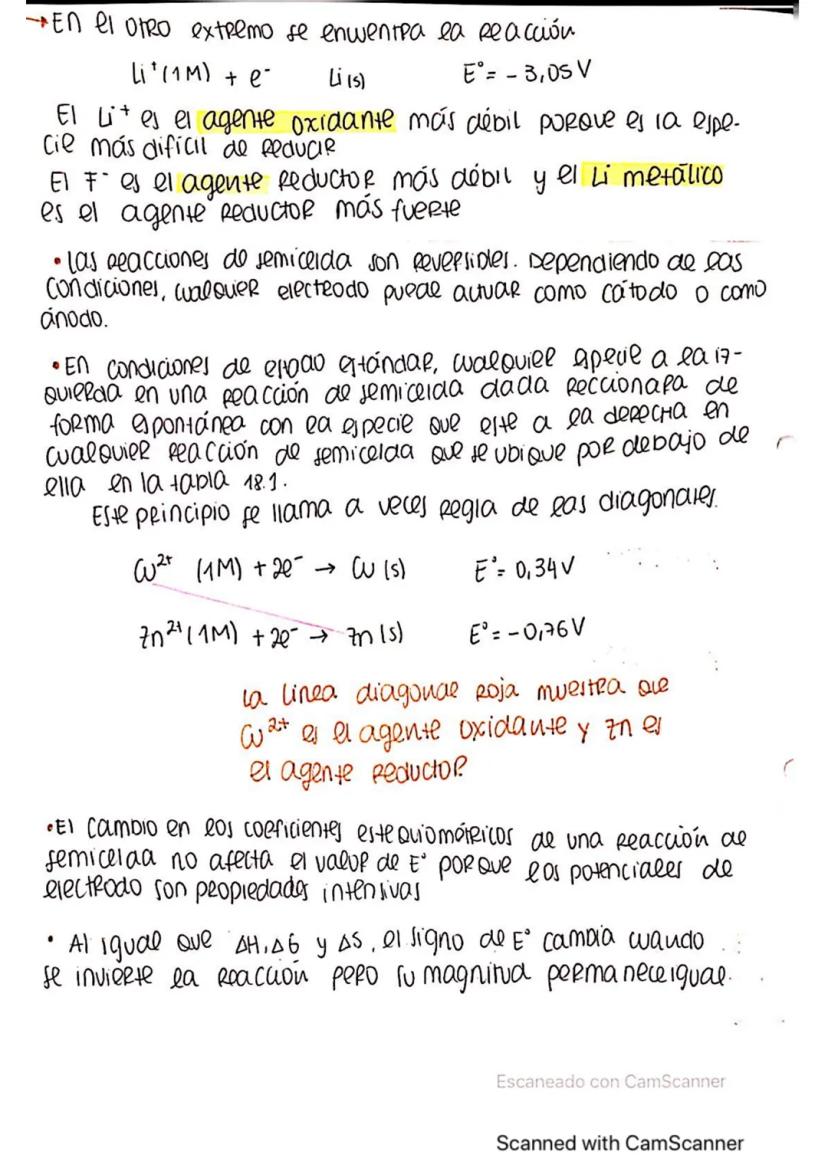 → En el otro extremo se encuentra la reacción
Li⁺(1M) + e⁻ Li(s) E° = - 3,05 V
El Li⁺ es el agente oxidante más débil porque es la espe-
cie más difícil de reducir
El F⁻ es el agente reductor más débil y el Li metálico
es el agente reductor más fuerte
• Las reacciones de semicelda son reversibles. Dependiendo de las
condiciones, cualquier electrodo puede actuar como cátodo o como
ánodo.
• En condiciones de estado estándar, cualquier especie a la iz-
quierda en una reacción de semicelda dada reccionara de
forma espontánea con la especie que este a la derecha en
cualquier reacción de semicelda que se ubique por debajo de
ella en la tabla 18.1.
Este principio se llama a veces regla de las diagonales.
Cu²⁺ (1M) + 2e⁻ → Cu (s) E° = 0,34 V
Zn²⁺ (1M) + 2e⁻ → Zn (s) E° = -0,76 V
La línea diagonal roja muestra que
Cu²⁺ es el agente oxidante y Zn es
el agente reductor
• El cambio en los coeficientes estequiométricos de una reacción de
semicelda no afecta el valor de E° porque los potenciales de
electrodo son propiedades intensivas
• Al igual que ΔH, ΔG y ΔS, el signo de E° cambia cuando
se invierte la reacción pero su magnitud permanece igual.
Escaneado con CamScanner
Scanned with CamScanner